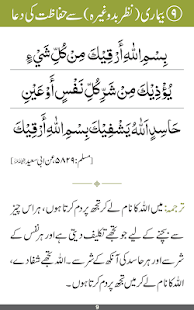 ۹ بیماری (نظر بد وغیرہ) سے حفاظت کی دعا
بِسْمِ اللّٰهِ أَرْقِيْكَ مِنْ كُلِّ شَيْءٍ
يُؤْذِيْكَ مِنْ شَرِّ كُلِّ نَفْسٍ أَوْ عَيْنِ
حَاسِدٍ اَللّٰهُ يَشْفِيْكَ بِسْمِ اللّٰهِ أَرْقِيْكَ
[مسلم: ۵۸۲۹، عن ابی سعید]
ترجمہ: میں اللہ کا نام لے کر تجھ پر دم کرتا ہوں، ہر اس چیز
سے بچنے کے لیے جو تجھے تکلیف دیتی ہے اور ہر نفس کے
شر سے اور ہر حاسد کی آنکھ کے شر سے۔ اللہ تجھے شفا دے،
میں اللہ کا نام لے کر تجھ پر دم کرتا ہوں۔